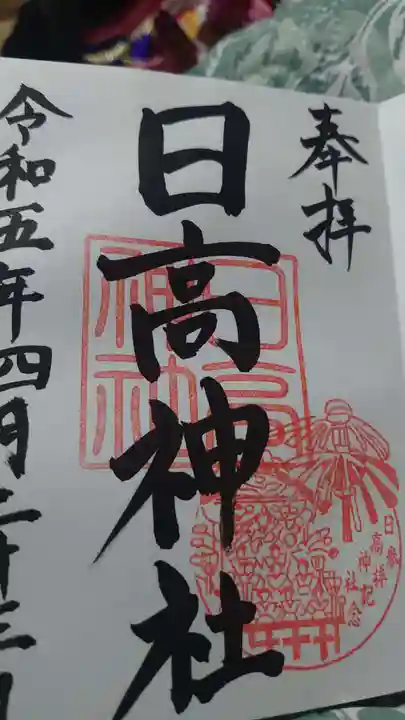 奉拝
日高神社
令和五年四月二十三日
日高神社
日高神社
参拝記念